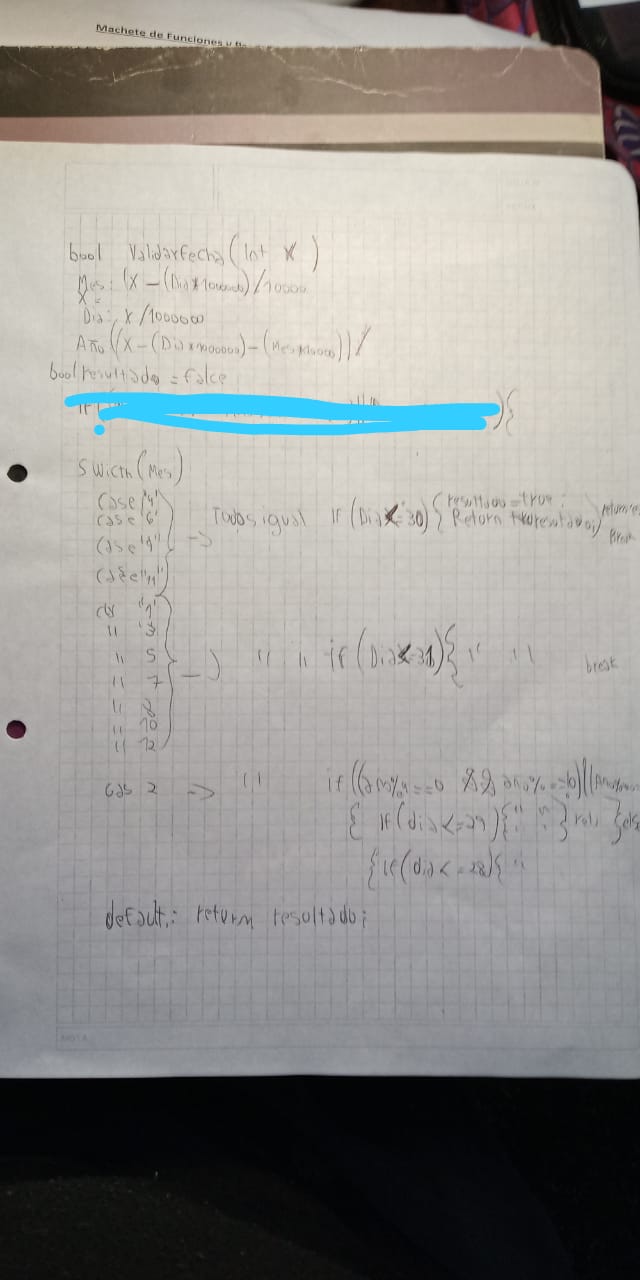 Machete de Funciones y
bool ValidarFecha (Int X)
Mes: (X-(Dia*1000000)/10000
X=
Dia: X/1000000
Año ((X-(Dia*1000000)-(Mes*10000))/
bool resultado = false
if( ){
SWicth (Mes)
Case '4'
case '6' -> Todos igual If (Dia<=30) { resultado=true;
Case '9' Return resultado;
Case '11' Break
'1'
" 3
" 5 -> " " if (Dia<=31) { " " break
" 7
" 8
" 10
" 12
Cas 2 -> " if ((año%4==0 && año%==0)||(Año
{ If (dia<=29) {" " } } else
{ If (dia<=28) { "
default: return resultado;